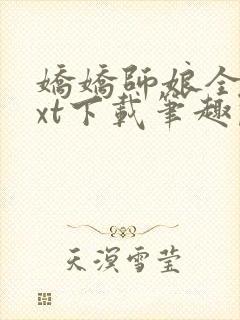 嬌嬌師娘全
xt下載筆趣
天溟雪莹